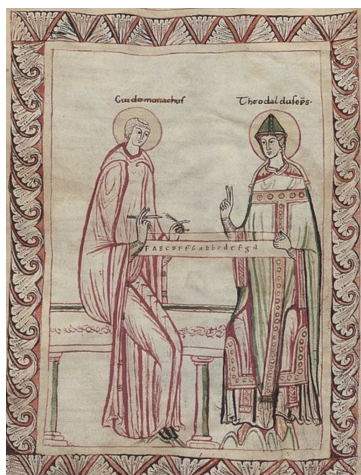 Guido monachuſ
Theodalduſ ep̄s.
Γ A B C D E F G a b b c d e f g d